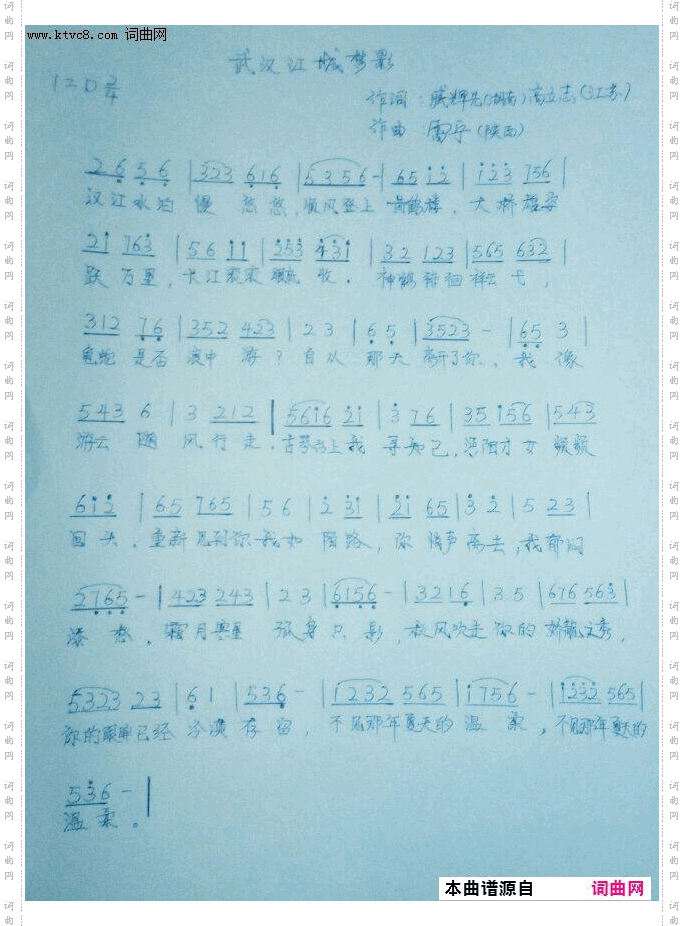 www.ktvc8.com 词曲网
武汉江城梦影
1=D 2/4
作词:腾辉(湖南)高立志(江苏)
作曲:雷宇(陕西)
2 6 5 6 | 323 616 | 5356 - | 65 12 | 123 756 |
汉江水泊 慢 悠悠,顺风登上 黄鹤楼,大桥雄姿
21 763 | 56 11 | 253 431 | 32 123 | 565 632 |
跃万里,长江滚滚眼底收.神鹤徘徊祥云飞,
312 76 | 352 423 | 2 3 | 6 5 | 3523 - | 65 3 |
龟蛇是否浪中游?自从那天离开了你,我像
543 6 | 3 212 | 5616 21 | 3 76 | 35 156 | 543
游云随风行走.古琴台上我寻知己,才女频频
612 | 65 765 | 56 | 2 31 | 21 65 | 3 2 | 5 23 |
回头.重新见到你我如陌路,你悄声离去,我郁闷
2765 - | 423 243 | 2 3 | 6156 - | 3216 | 3 5 | 676 563 |
添愁.霜月寒星孤身只影,秋风吹走你的
5323 23 | 61 | 536 - | 1232 565 | 1756 - | 1232 565 |
你的眼眸已经冷漠存留,不见那年夏天的温柔,不见那年夏天的
536 - |
温柔。
本曲谱源自 词曲网